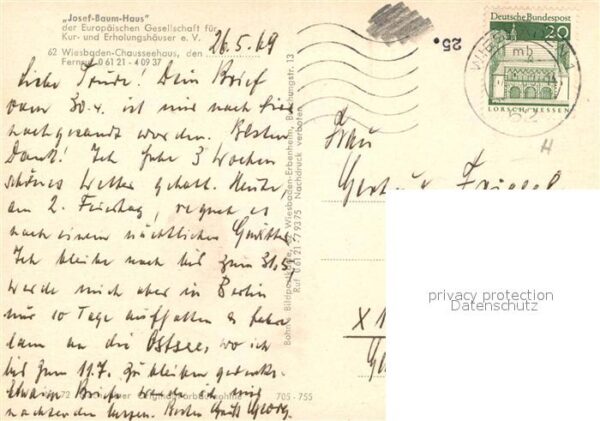 „Josef-Baum-Haus"
der Europäischen Gesellschaft für
Kur- und Erholungshäuser e. V.
62 Wiesbaden-Chausseehaus, den 26.5.69
Fernruf 0 61 21 - 4 09 37
Liebe Trude! Dein Brief
vom 30.4. ist mir nach hier
nachgesandt worden. Besten
Dank! Ich habe 3 Wochen
schönes Wetter gehabt. Heute,
am 2. Feiertag, regnet es
nach einem nächtlichen Gewitter.
Ich bleibe noch bis zum 31.5.,
werde mich aber in Berlin
nur 10 Tage aufhalten u.
dann an die Ostsee, wo ich
bis zum 11.7. zu bleiben gedenke.
Etwaige Briefe werde ich mir
nachsenden lassen. Georg.
72 705 - 755
Wiesbaden-Erbenheim
Ruf 0 61 21 - 7 93 75 Nachdruck verboten
25.
Deutsche Bundespost
20
LORSCH/HESSEN
mb
H
Frau
X 1
privacy protection
Datenschutz